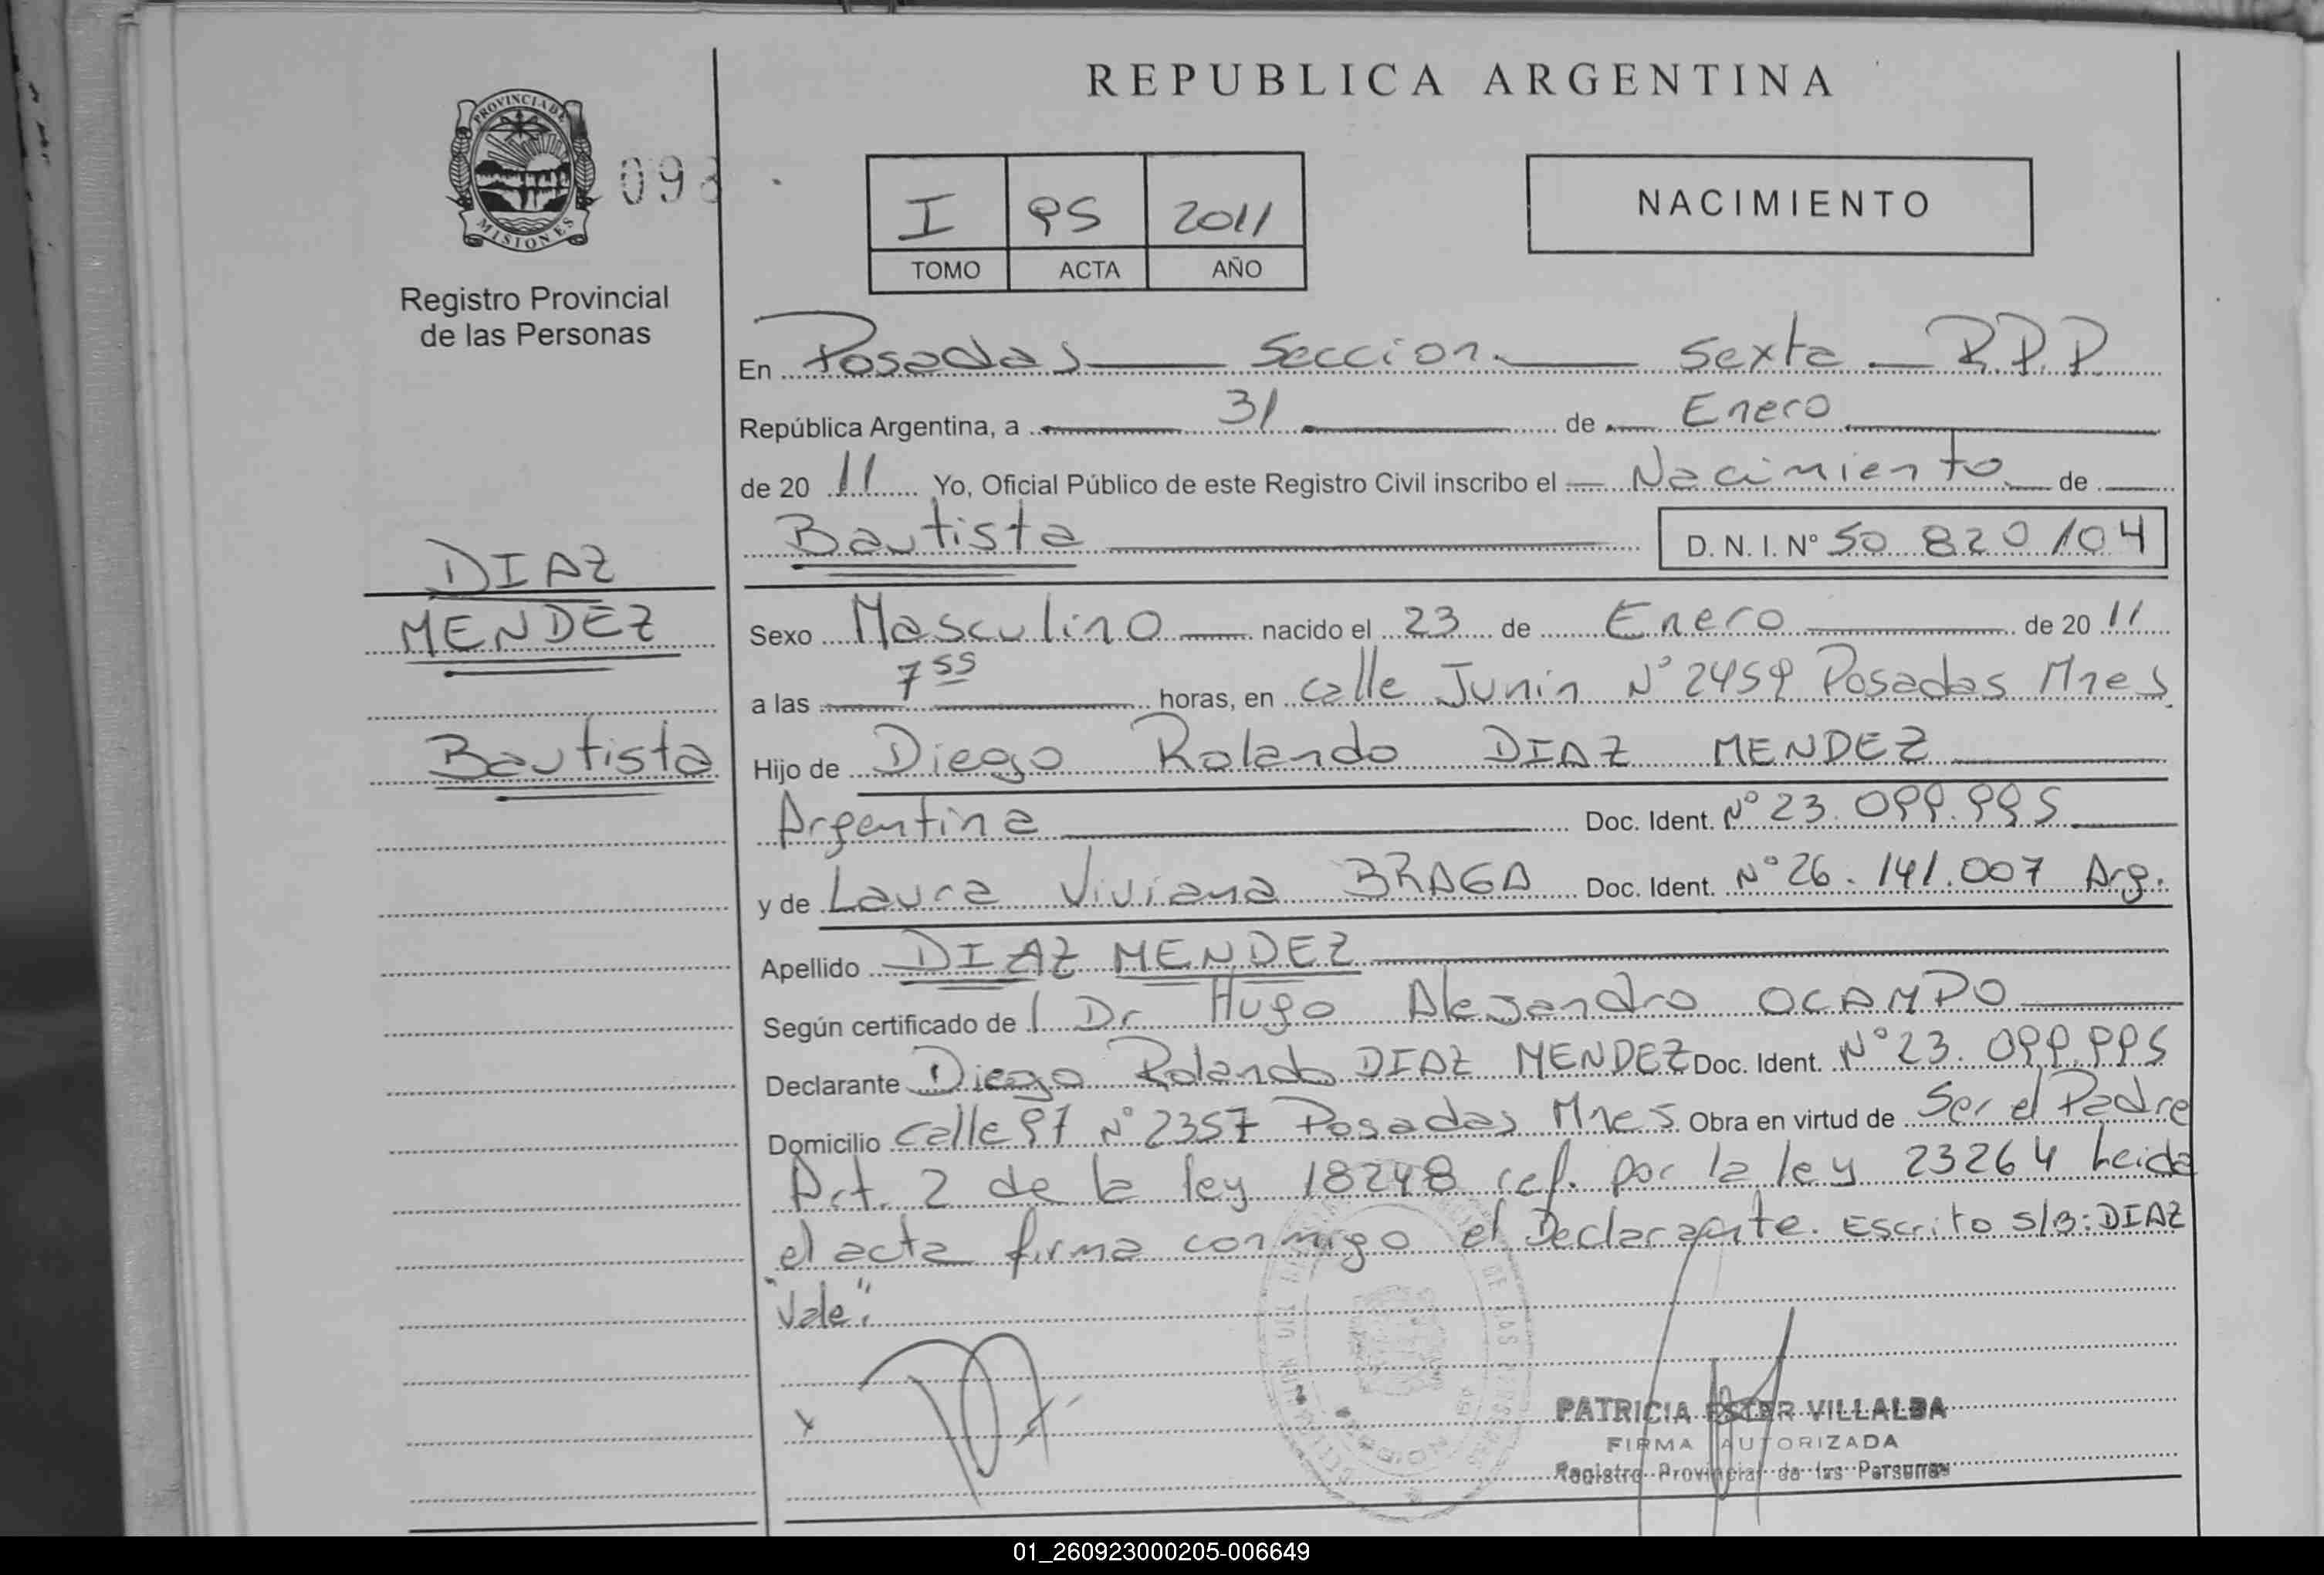 REPUBLICA ARGENTINA
PROVINCIA DE
MISIONES
093
Registro Provincial
de las Personas
I 95 2011
TOMO ACTA AÑO
NACIMIENTO
En Posadas Seccion Sexta R.P.P.
República Argentina, a 31 de Enero
de 20 11 Yo, Oficial Público de este Registro Civil inscribo el Nacimiento de
Bautista D. N. I. Nº 50 820 104
DIAZ
MENDEZ
Bautista
Sexo Masculino nacido el 23 de Enero de 20 11
a las 7 55 horas, en calle Junin Nº 2459 Posadas Mnes
Hijo de Diego Rolando DIAZ MENDEZ
Argentina Doc. Ident. Nº 23.099.995
y de Laura Viviana BRAGA Doc. Ident. Nº 26.141.007 Arg.
Apellido DIAZ MENDEZ
Según certificado de Dr Hugo Alejandro OCAMPO
Declarante Diego Rolando DIAZ MENDEZ Doc. Ident. Nº 23.099.995
Domicilio calle 97 Nº 2357 Posadas Mnes Obra en virtud de Ser el Padre
Art. 2 de la ley 18248 ref. por la ley 23264 Leida
el acta firma conmigo el Declarante. Escrito s/B: DIAZ
"Vale".
PATRICIA ESTER VILLALBA
FIRMA AUTORIZADA
Registro Provincial de las Personas
01_260923000205-006649